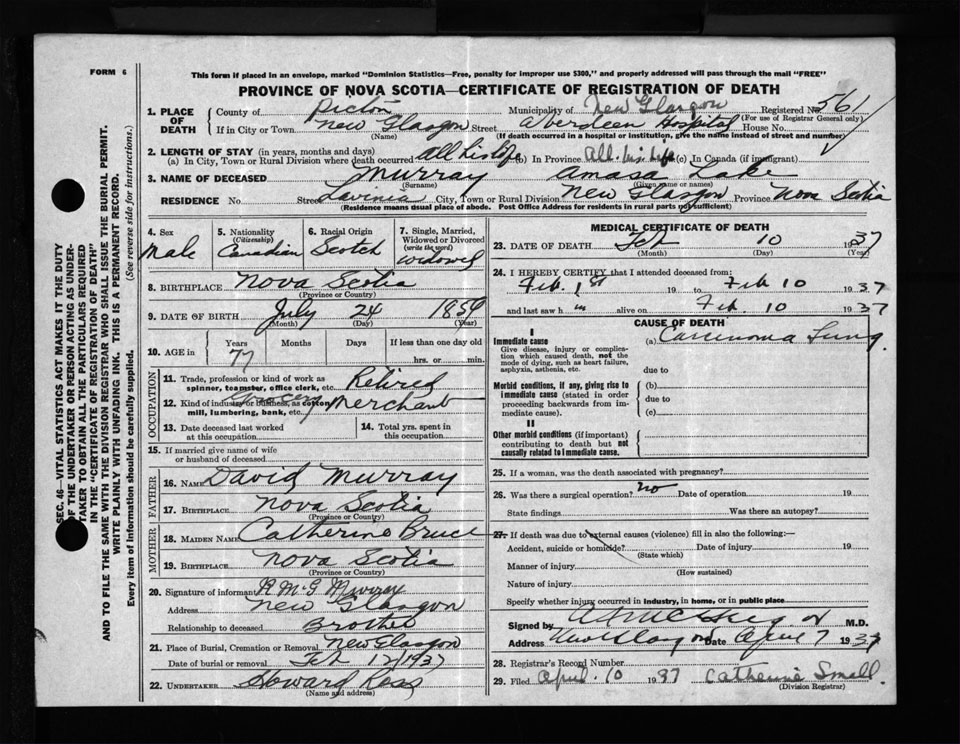 FORM 6
This form if placed in an envelope, marked "Dominion Statistics—Free, penalty for improper use $300," and properly addressed will pass through the mail "FREE"
PROVINCE OF NOVA SCOTIA—CERTIFICATE OF REGISTRATION OF DEATH
1. PLACE OF DEATH County of Pictou Municipality of New Glasgow Registered No. 561
(For use of Registrar General only)
If in City or Town New Glasgow Street Aberdeen Hospital House No.
(Name) (If death occurred in a hospital or institution, give the name instead of street and number)
2. LENGTH OF STAY (in years, months and days)
(a) In City, Town or Rural Division where death occurred All his life (b) In Province All his life (c) In Canada (if immigrant)
3. NAME OF DECEASED Murray Amasa Lake
(Surname) (Given name or names)
RESIDENCE No. Street Lavinia City, Town or Rural Division New Glasgow Province Nova Scotia
(Residence means usual place of abode. Post Office Address for residents in rural parts not sufficient)
4. Sex 5. Nationality (Citizenship) 6. Racial Origin 7. Single, Married, Widowed or Divorced (write the word)
Male Canadian Scotch Widowed
8. BIRTHPLACE Nova Scotia
(Province or Country)
9. DATE OF BIRTH July 24 1859
(Month) (Day) (Year)
10. AGE in Years Months Days If less than one day old
77 hrs. or min.
OCCUPATION
11. Trade, profession or kind of work as spinner, teamster, office clerk, etc. Retired
12. Kind of industry or business, as cotton mill, lumbering, bank, etc. Grocery Merchant
13. Date deceased last worked at this occupation 14. Total yrs. spent in this occupation
15. If married give name of wife or husband of deceased
FATHER
16. NAME David Murray
17. BIRTHPLACE Nova Scotia
(Province or Country)
MOTHER
18. MAIDEN NAME Catherine Bruce
19. BIRTHPLACE Nova Scotia
(Province or Country)
20. Signature of informant R McG Murray
Address New Glasgow
Relationship to deceased Brother
21. Place of Burial, Cremation or Removal New Glasgow
Date of burial or removal Feb 12/1937
22. UNDERTAKER Howard Ross
(Name and address)
MEDICAL CERTIFICATE OF DEATH
23. DATE OF DEATH Feb 10 1937
(Month) (Day) (Year)
24. I HEREBY CERTIFY that I attended deceased from:
Feb. 1st 19 to Feb 10 1937
and last saw him alive on Feb. 10 1937
CAUSE OF DEATH
I
Immediate cause (a) Carcinoma Lung
Give disease, injury or complication which caused death, not the mode of dying, such as heart failure, asphyxia, asthenia, etc.
due to
Morbid conditions, if any, giving rise to immediate cause (stated in order proceeding backwards from immediate cause).
(b)
due to
(c)
II
Other morbid conditions (if important) contributing to death but not causally related to immediate cause.
25. If a woman, was the death associated with pregnancy?
26. Was there a surgical operation? no Date of operation 19
State findings Was there an autopsy?
27. If death was due to external causes (violence) fill in also the following:—
Accident, suicide or homicide? Date of injury 19
(State which)
Manner of injury
(How sustained)
Nature of injury
Specify whether injury occurred in industry, in home, or in public place
Signed by M.D.
Address New Glasgow Date April 7 1937
28. Registrar's Record Number
29. Filed April. 10 1937 Catherine Small
(Division Registrar)
SEC. 46—VITAL STATISTICS ACT MAKES IT THE DUTY
OF THE UNDERTAKER OR PERSON ACTING AS UNDER-
TAKER TO OBTAIN ALL THE PARTICULARS REQUIRED
IN THE "CERTIFICATE OF REGISTRATION OF DEATH"
AND TO FILE THE SAME WITH THE DIVISION REGISTRAR WHO SHALL ISSUE THE BURIAL PERMIT.
WRITE PLAINLY WITH UNFADING INK. THIS IS A PERMANENT RECORD.
Every item of Information should be carefully supplied. (See reverse side for instructions.)